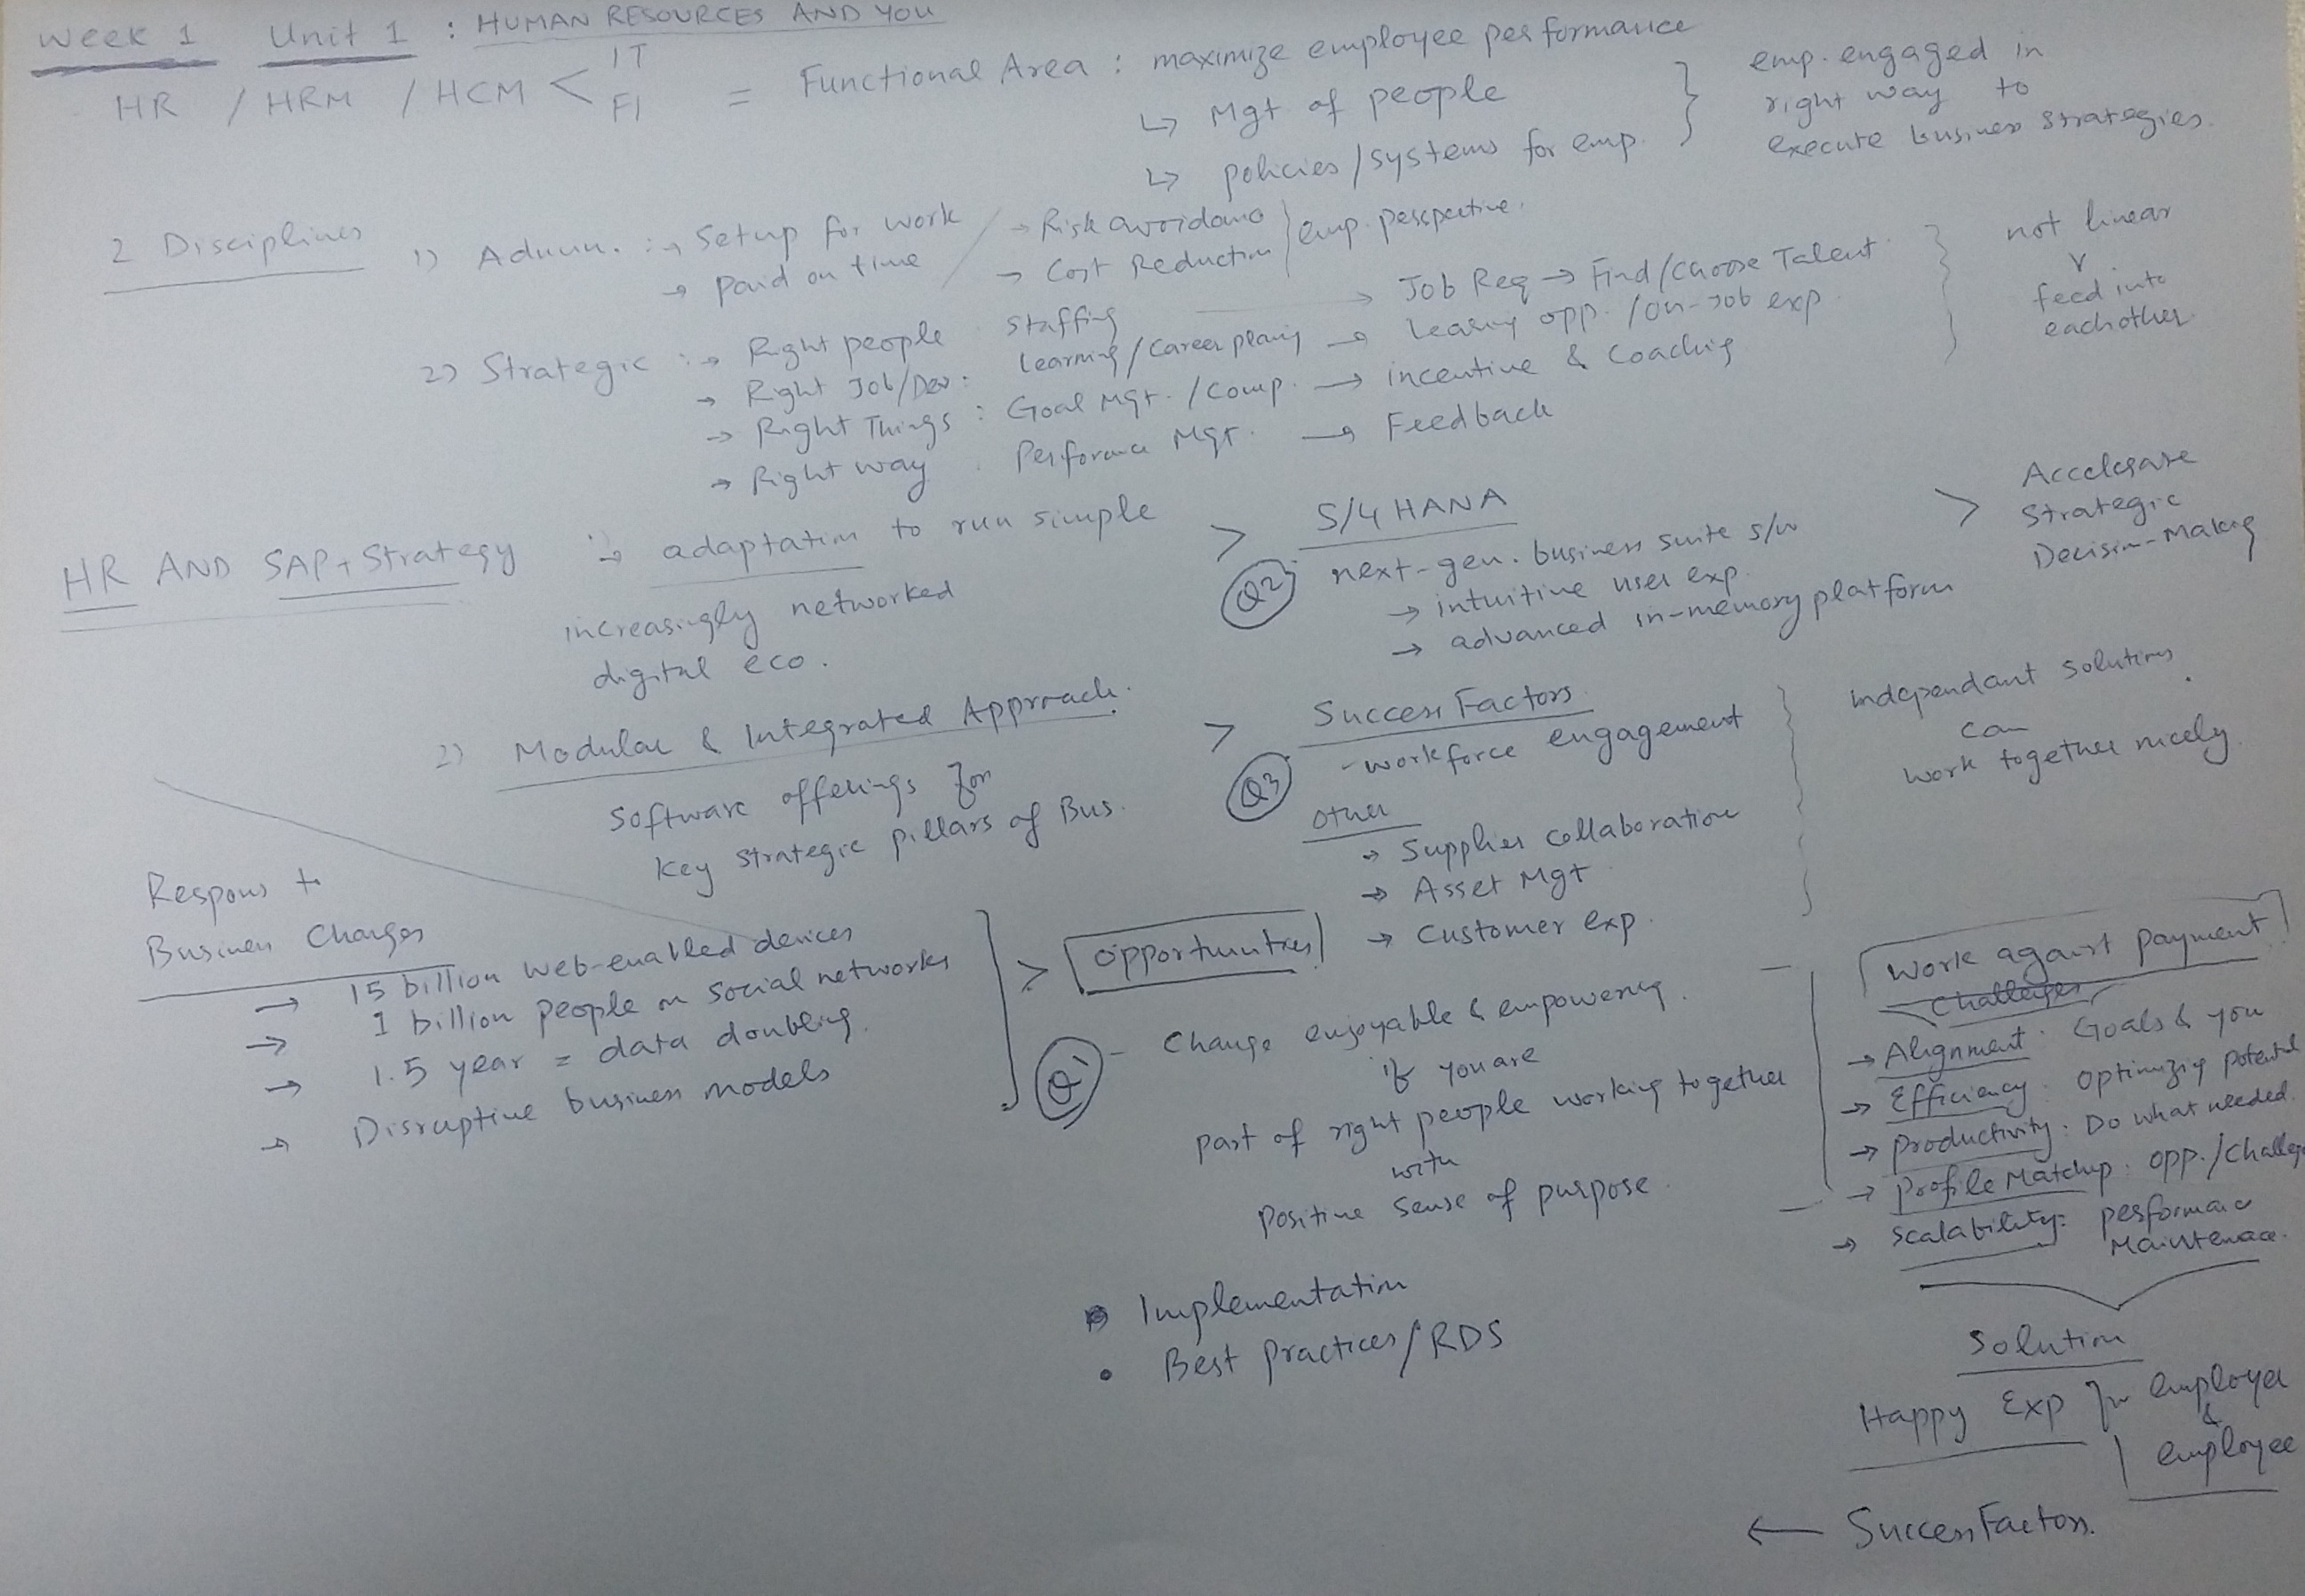 Week 1 Unit 1 : HUMAN RESOURCES AND YOU
HR / HRM / HCM < IT FI = Functional Area : maximize employee performance
↳ Mgt of people
↳ policies/systems for emp.
emp. engaged in
right way to
execute business strategies.
2 Disciplines
1) Admn. :→ Setup for work
→ Paid on time
→ Risk avoidance
→ Cost Reduction
emp. perspective.
2) Strategic :→ Right people : Staffing → Job Req → Find/Choose Talent
→ Right Job/Dev : Learning/Career planing → Learnig opp. /on-job exp.
→ Right Things : Goal Mgt. /Comp. → incentive & Coachig
→ Right way : Performance Mgt. → Feedback
not linear
feed into
eachother.
HR AND SAP + Strategy :→ adaptation to run simple
increasingly networked
digital eco.
> S/4 HANA
Q2: next-gen. business suite s/w
→ intuitive user exp.
→ advanced in-memory platform
> Accelerate
Strategic
Decision-Making
2) Modular & Integrated Approach.
Software offerings for
key strategic pillars of Bus.
> SuccessFactors
Q3 - workforce engagement
Other
→ Supplier collaboration
→ Asset Mgt
→ Customer exp.
Independant solutions
can
work together nicely.
Respons to
Business Changes
→ 15 billion web-enabled devices
→ 1 billion people on social networks
→ 1.5 year = data doubling.
→ Disruptive business models
> Opportunities
Q1 - Change enjoyable & empowering.
if you are
part of right people working together
with
positive sense of purpose.
Work against payment
Challenges
→ Alignment : Goals & you
→ Efficiency : Optimizig potential
→ Productivity : Do what needed.
→ Profile Matchup : opp./Challeg
→ Scalability : performanc
Maintenace.
Solution
Happy Exp for employer
&
employee
← SuccessFactors.
Implementation
• Best Practices/RDS